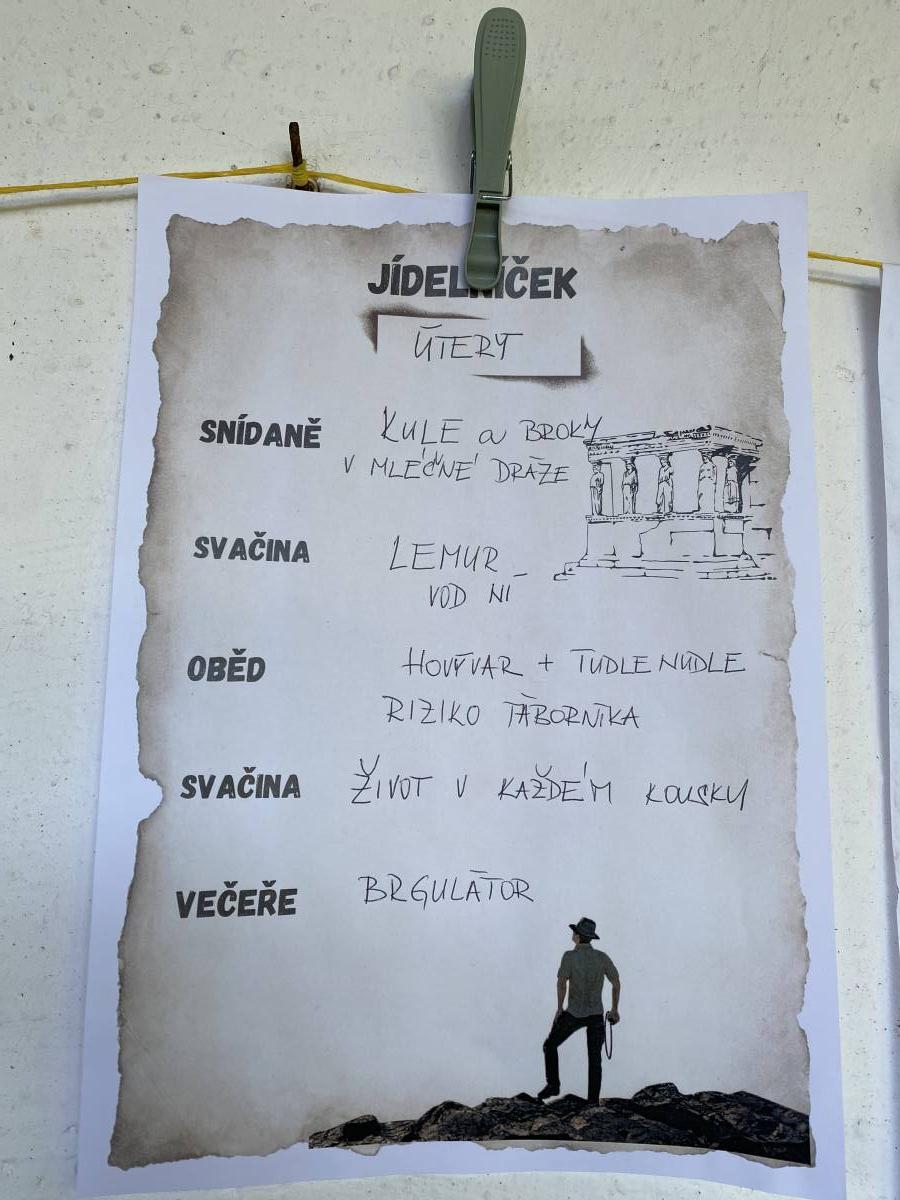 JÍDELNÍČEK
ÚTERÝ
SNÍDANĚ KULE a BROKY
V MLÉČNÉ DRÁZE
SVAČINA LEMUR
VODNÍ
OBĚD HOVÝVAR + TUDLE NUDLE
RIZIKO TÁBORNÍKA
SVAČINA ŽIVOT V KAŽDÉM KOUSKU
VEČEŘE BRGULÁTOR